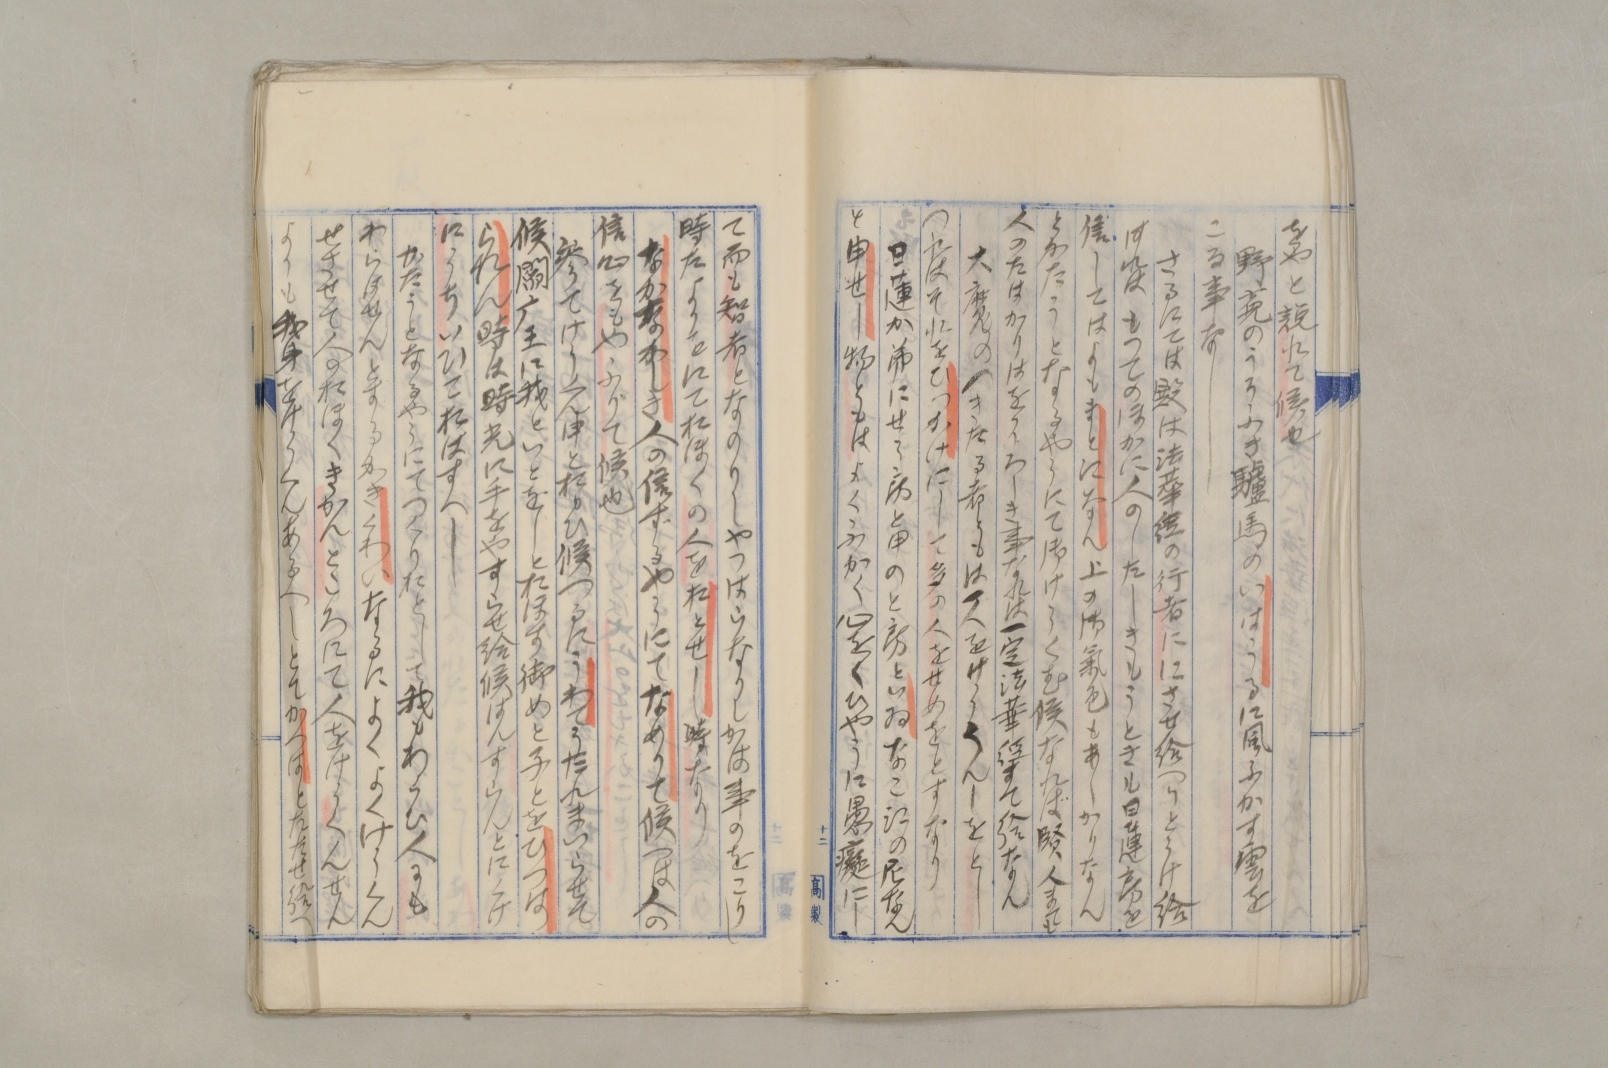 をやと説れて候也
野荒のうろふき驢馬のいはうるに風ふかす雲を
こる事なし
さるにては殿は法華経の行者ににさせ給へりとうけ給
はれは もつてのほかに人のしたしきもうときも日蓮房を
信してはよもまとひなん 上の御気色もあしかりなん
とかたうとなるやうにて御けうくむ候なれば賢人まても
人のたはかりはをそろしき事なれは一定法華経すて給なん
大魔のつきたる者ともは一人をけうくんしをとし
つれはそれをひつかけにして多の人をせめをとすなり
日蓮か弟にせう房と申のと房といゐなこゑの尼なん
と申せし物ともはよくふかく心をくひやうに愚癡にし
て而も智者となのりしやつはらなりしかは事のをこりし
時たよりをえておほくの人をおとせし時なり
なかなかしき人の信するやうにてなめりて候へは人の
信心をもやふりて候也
釈うてけう 申とおもひ候つるにうわてうたれまいらせて
候閻广王に我といとをしとおほす御めと子とをひつは
られん時は時光に手をやすらせ給候はんすらんとにくけ
にうちいひておはすへし
かたうとなるやうにてつくりおとして我もわらひ人にも
わらはせんとするかきくわいなるによくよくけうくん
せさせて人のおほくきかんところにて人をけうくんせん
よりも我身をけうくんあるへしとてかへはとたたせ給へ
十二
高製